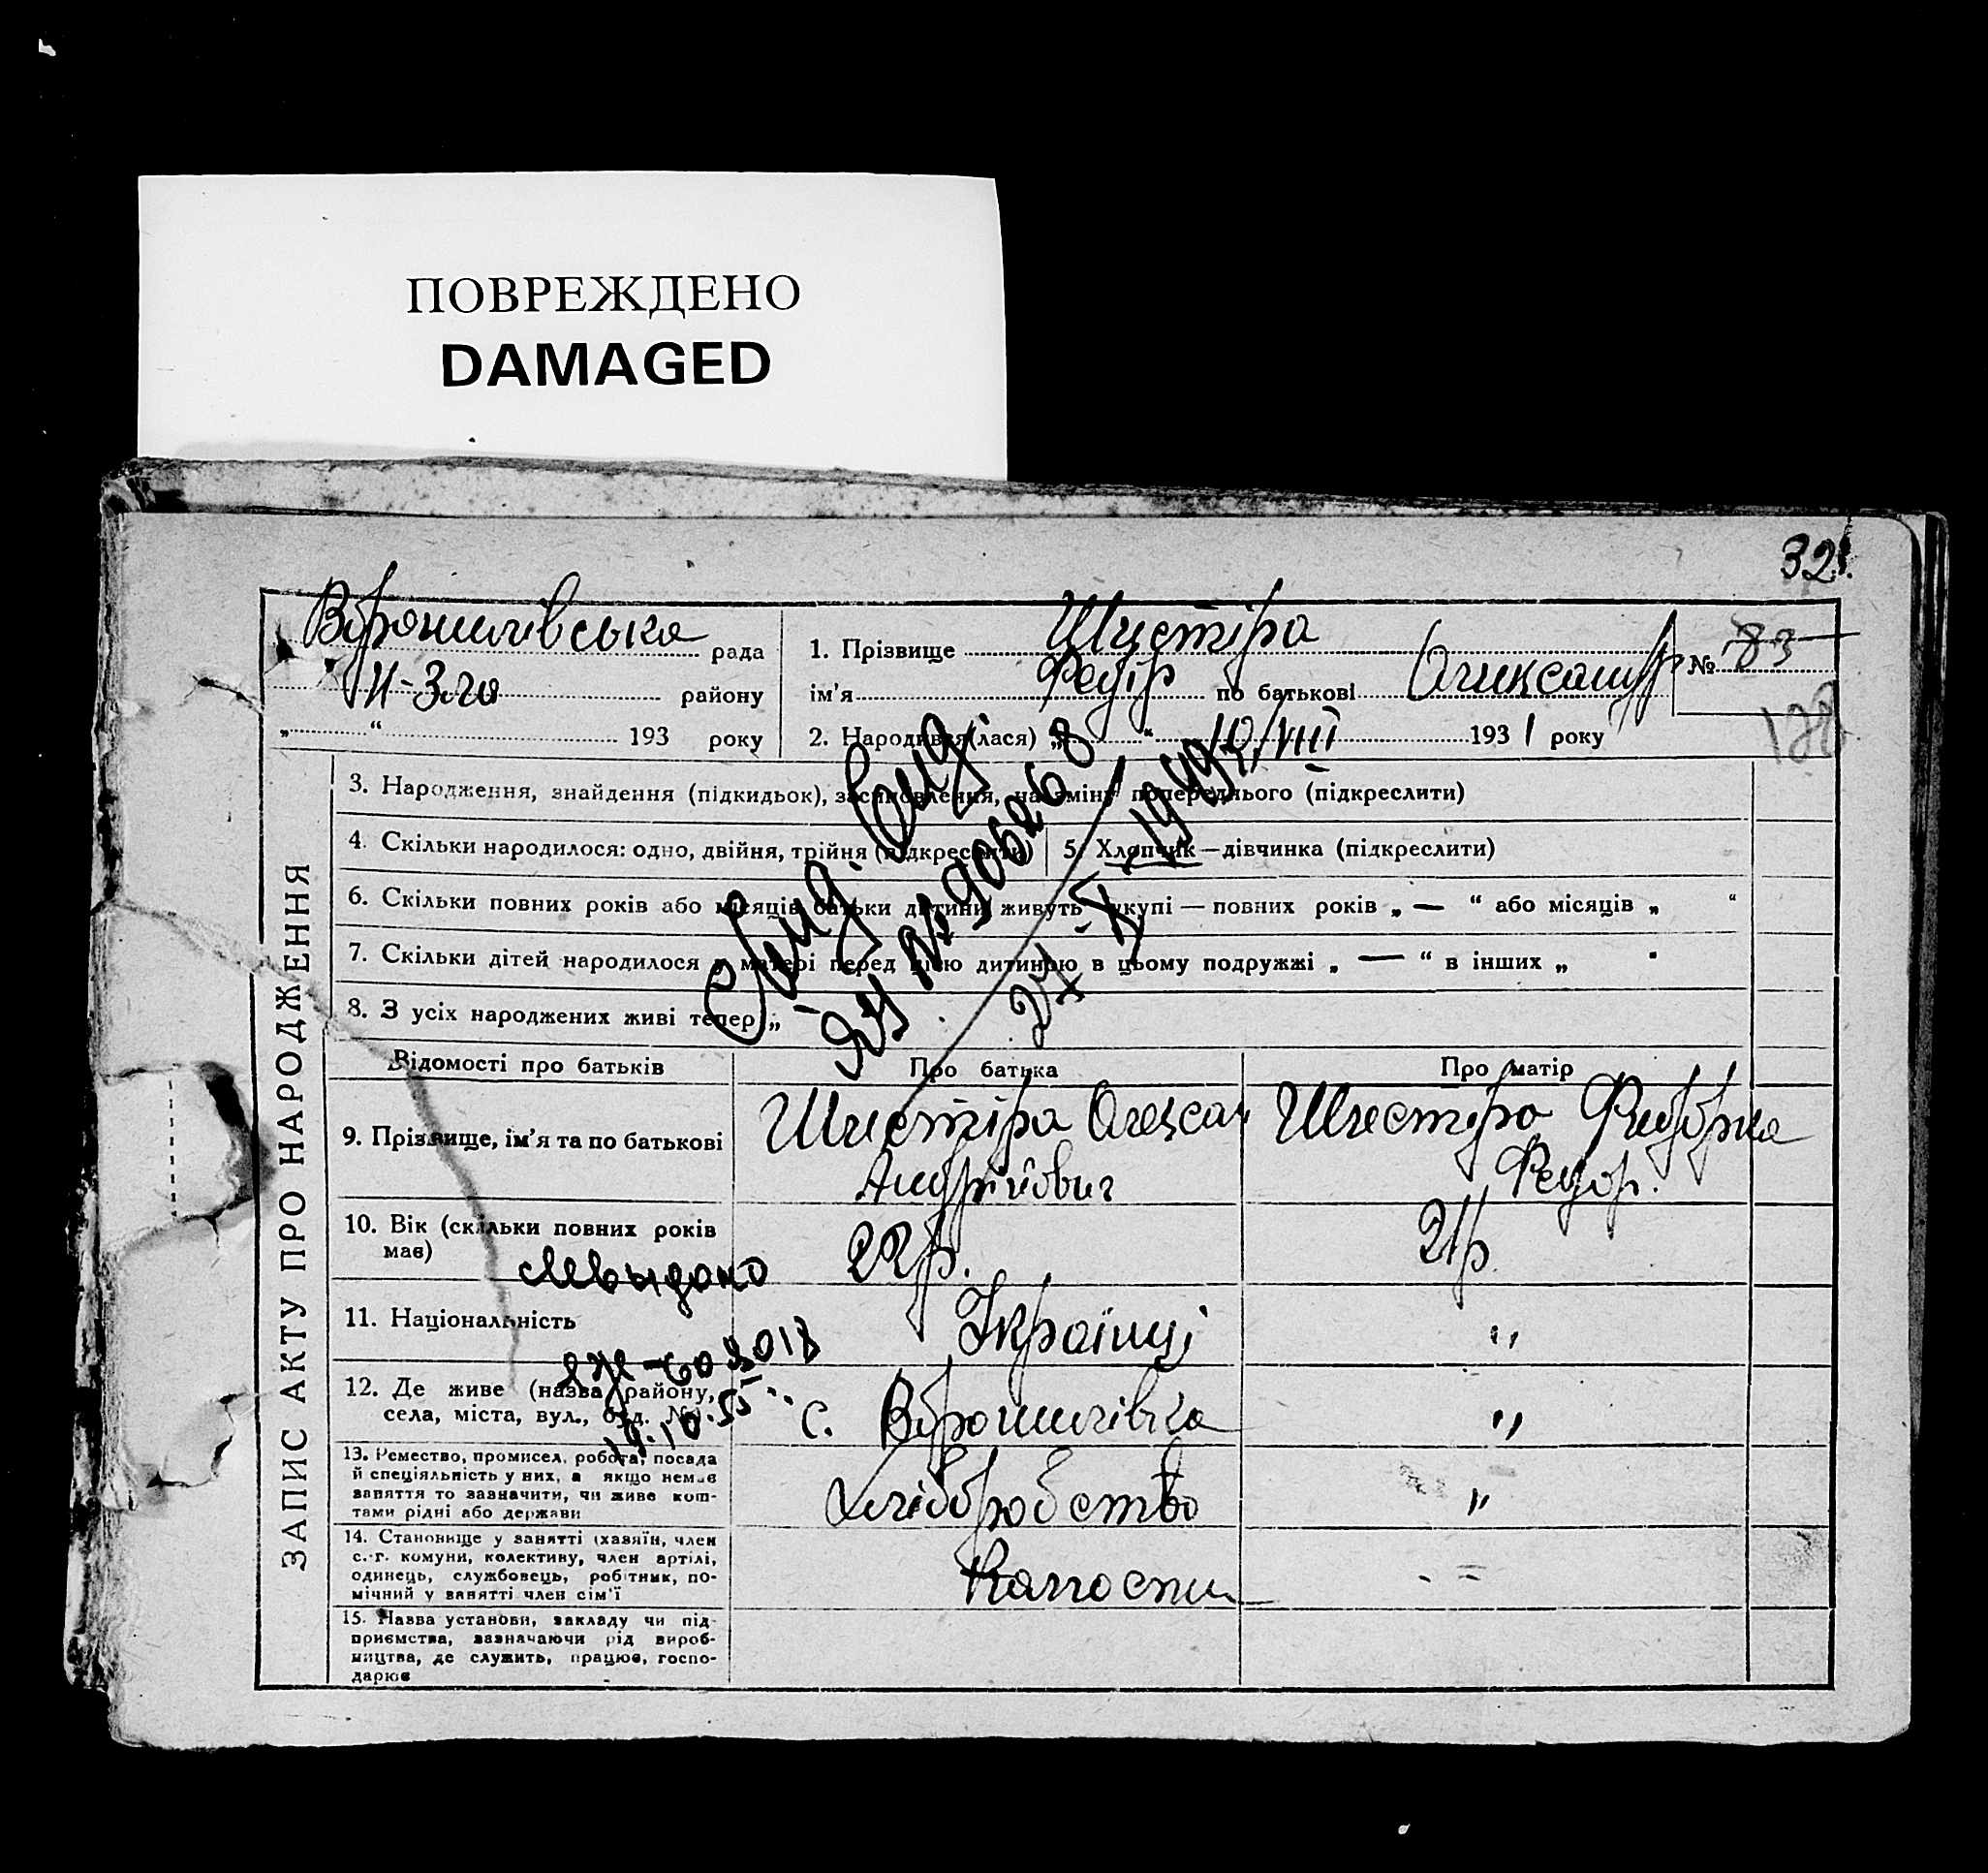 ПОВРЕЖДЕНО
DAMAGED
32
Ворошилівська рада
району
" " 193 року
1. Прізвище Шчестіра
ім'я Федір по батькові
№ 83
188
2. Народився(лася) " " 10/VIII 1931 року
3. Народження, знайдення (підкидьок), засиновлення, на зміну попереднього (підкреслити)
4. Скільки народилося: одно, двійня, трійня (підкреслити)
5. Хлопчик—дівчинка (підкреслити)
6. Скільки повних років або місяців батьки дитини живуть укупі — повних років „ — “ або місяців „ “
7. Скільки дітей народилося у матері перед цією дитиною в цьому подружжі „ — “ в інших „ "
8. З усіх народжених живі тепер „
24-X-1949
ЗАПИС АКТУ ПРО НАРОДЖЕННЯ
Відомості про батьків
Про батька
Про матір
9. Прізвище, ім'я та по батькові
Андрійович
Федор.
10. Вік (скільки повних років має)
22р.
21р.
11. Національність
Українці
"
12. Де живе (назва району, села, міста, вул., буд. №)
19.10.55
с. Ворошилівка
"
13. Ремество, промисел, робота, посада
й спеціяльність у них, а якщо немає
заняття то зазначити, чи живе кош-
тами рідні або держави
Хліборобство
"
14. Становище у занятті (хазяїн, член
с.-г. комуни, колективу, член артілі,
одинець, службовець, робітник, по-
мічний у занятті член сім'ї
15. Назва установи, закладу чи під-
приємства, зазначаючи рід вироб-
ництва, де служить, працює, госпо-
дарює